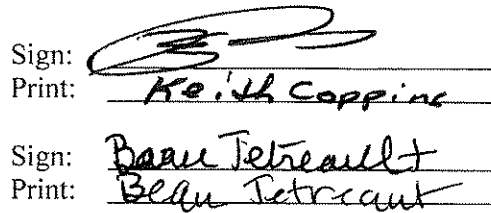 Sign:
Print: Keith Coppins
Sign: Beau Tetreault
Print: Beau Tetreault